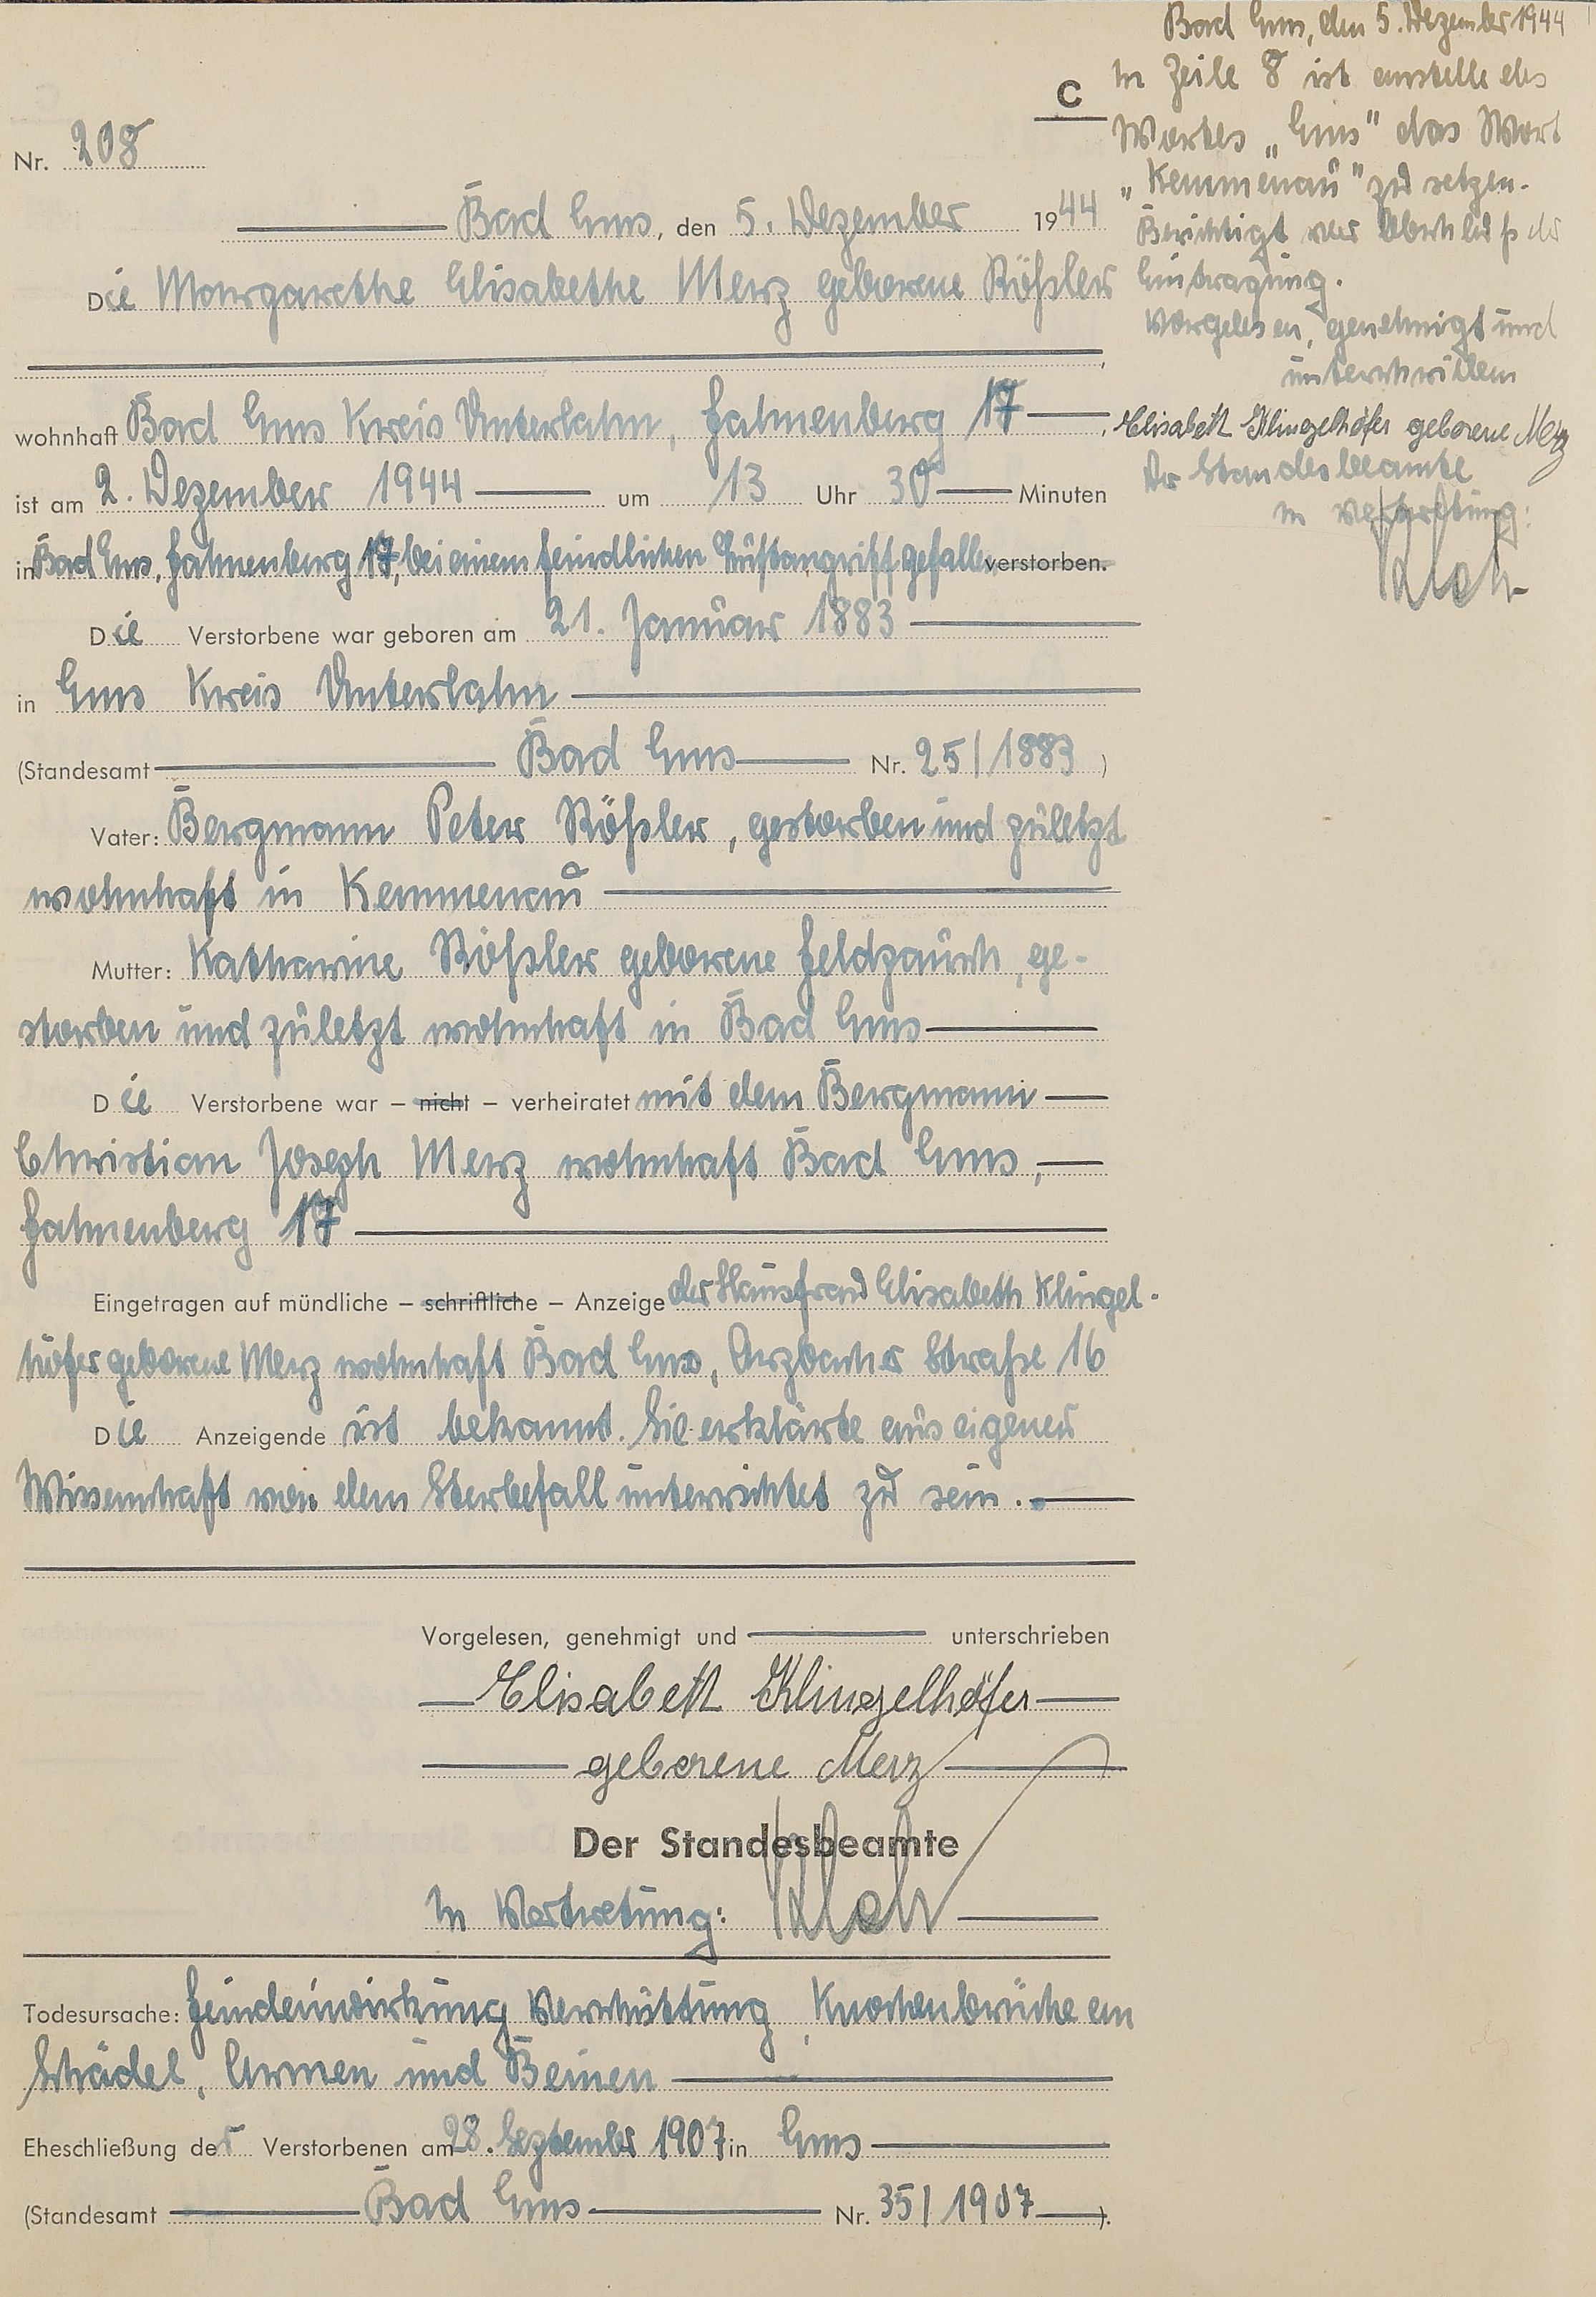 C
Nr. 208
Bad Ems, den 5. Dezember 1944
Die Margarethe Elisabethe Merz geborene Rößler
wohnhaft Bad Ems Kreis Unterlahn, Hahnenberg 17,
ist am 2. Dezember 1944 um 13 Uhr 30 Minuten
in Bad Ems, Hahnenberg 17, bei einem feindlichen Luftangriff gefallen verstorben.
Die Verstorbene war geboren am 21. Januar 1883
in Ems Kreis Unterlahn
(Standesamt Bad Ems Nr. 25/1883)
Vater: Bergmann Peter Rößler, gestorben und zuletzt
wohnhaft in Kemmenau
Mutter: Katharine Rößler geborene Feldpausch, ge-
storben und zuletzt wohnhaft in Bad Ems
Die Verstorbene war – nicht – verheiratet mit dem Bergmann
Christian Joseph Merz wohnhaft Bad Ems,
Hahnenberg 17
Eingetragen auf mündliche – schriftliche – Anzeige der Hausfrau Elisabeth Klingel-
höfer geborene Merz wohnhaft Bad Ems, Arzbacher Straße 16
Die Anzeigende ist bekannt. Sie erklärte aus eigener
Wissenschaft von dem Sterbefall unterrichtet zu sein.
Vorgelesen, genehmigt und unterschrieben
Elisabeth Klingelhöfer
geborene Merz
Der Standesbeamte
In Vertretung:
Todesursache: Feindeinwirkung Verschüttung, Knochenbrüche an
Schädel, Armen und Beinen
Eheschließung der Verstorbenen am 28. September 1907 in Ems
(Standesamt Bad Ems Nr. 35/1907).
Bad Ems, den 5. Dezember 1944
In Zeile 8 ist anstelle des
Wortes „Ems" das Wort
„Kemmenau" zu setzen.
Berichtigt vor Abschluß der
Eintragung.
Vorgelesen, genehmigt und
unterschrieben
Elisabeth Klingelhöfer geborene Merz
Der Standesbeamte
In Vertretung: